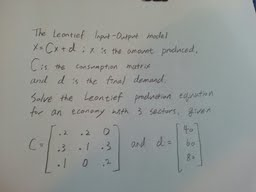 The Leontief Input-Output model
x=Cx+d ; x is the amount produced,
C is the consumption matrix
and d is the final demand.
Solve the Leontief production equation
for an economy with 3 sectors, given
C= [ .2 .2 0 and d= [ 40
.3 .1 .3 60
.1 0 .2 ] 80 ]